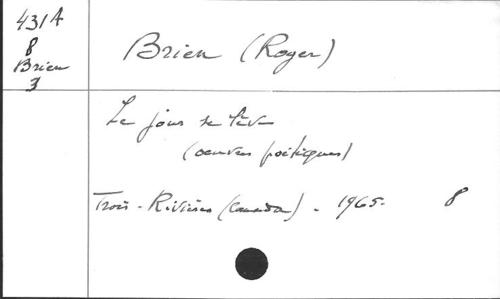 431A
8
Brien
3
Brien (Roger)
Le jour se lève
(oeuvres poétiques)
Trois-Rivières (Canada). 1965. 8